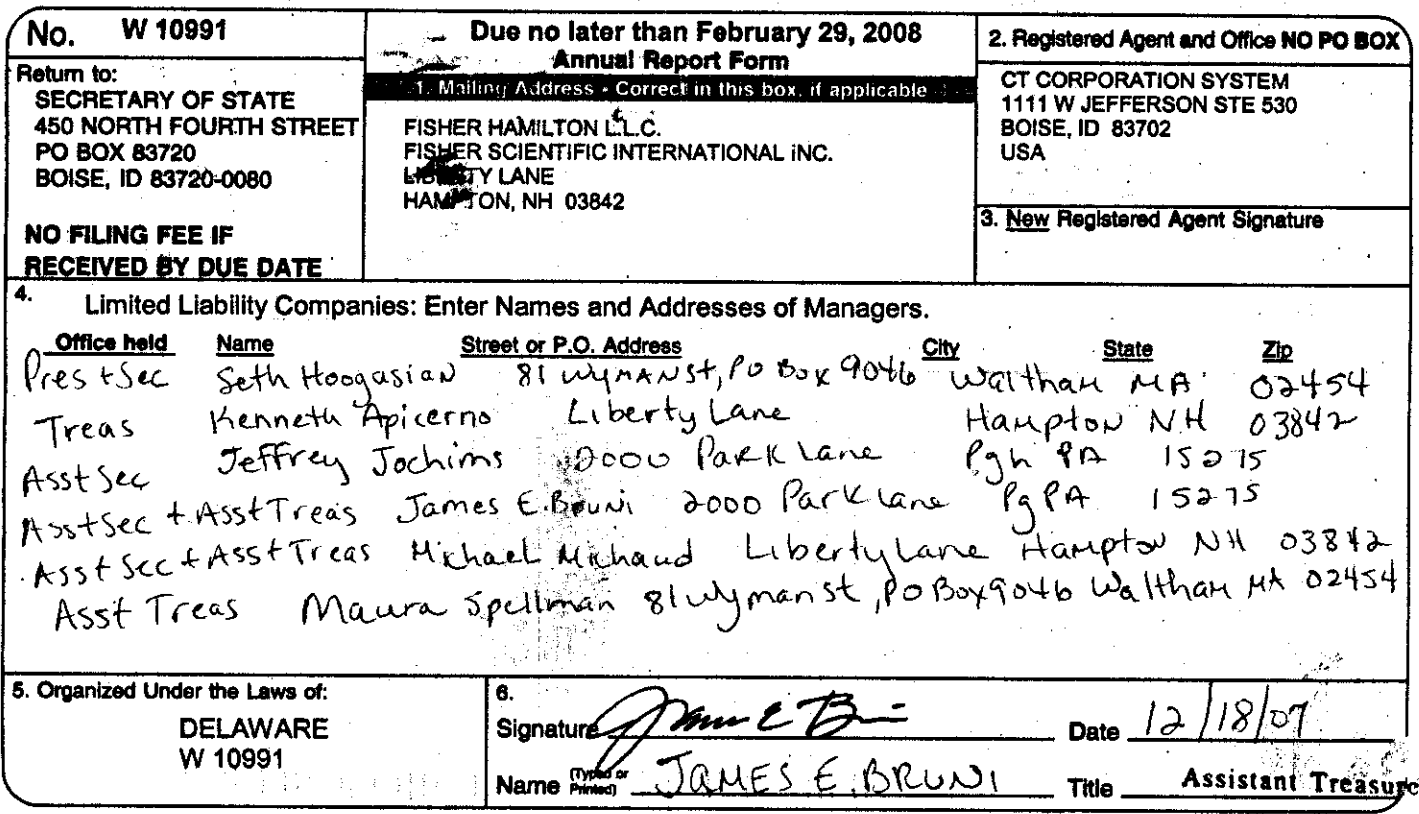 No. W 10991
Return to:
SECRETARY OF STATE
450 NORTH FOURTH STREET
PO BOX 83720
BOISE, ID 83720-0080
NO FILING FEE IF
RECEIVED BY DUE DATE
Due no later than February 29, 2008
Annual Report Form
1. Mailing Address - Correct in this box, if applicable
FISHER HAMILTON L.L.C.
FISHER SCIENTIFIC INTERNATIONAL INC.
LIBERTY LANE
HAMPTON, NH 03842
2. Registered Agent and Office NO PO BOX
CT CORPORATION SYSTEM
1111 W JEFFERSON STE 530
BOISE, ID 83702
USA
3. New Registered Agent Signature
4. Limited Liability Companies: Enter Names and Addresses of Managers.
Office held Name Street or P.O. Address City State Zip
Pres + Sec Seth Hoogasian 81 Wyman St, PO Box 9046 Waltham MA 02454
Treas Kenneth Apicerno Liberty Lane Hampton NH 03842
Asst Sec Jeffrey Jochims 2000 Park Lane Pgh PA 15275
Asst Sec + Asst Treas James E. Bruni 2000 Park Lane Pg PA 15275
Asst Sec + Asst Treas Michael Michaud Liberty Lane Hampton NH 03842
Asst Treas Maura Spellman 81 Wyman St, PO Box 9046 Waltham MA 02454
5. Organized Under the Laws of:
DELAWARE
W 10991
6.
Signature James E Bruni Date 12/18/07
Name (Typed or Printed) JAMES E. BRUNI Title Assistant Treasure